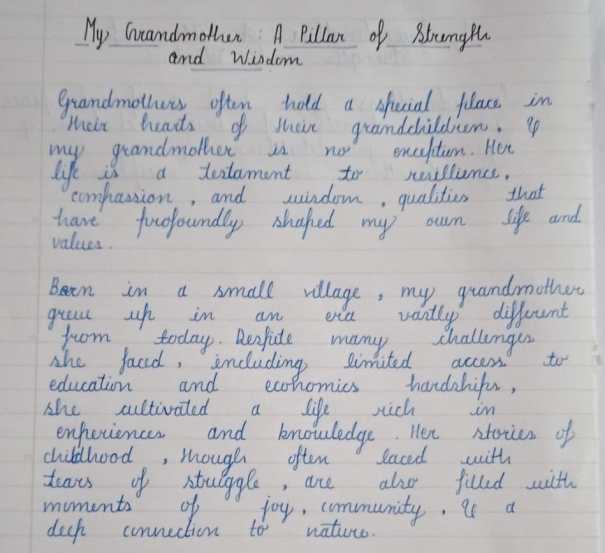 My Grandmother : A Pillar of Strength
and Wisdom
Grandmothers often hold a special place in
their hearts of their grandchildren. &
my grandmother is no exception. Her
life is a testament to resillience,
compassion, and wisdom, qualities that
have profoundly shaped my own life and
values.
Born in a small village, my grandmother
grew up in an era vastly different
from today. Despite many challenges
she faced, including limited access to
education and economics hardships,
she cultivated a life rich in
experiences and knowledge. Her stories of
childhood, though often laced with
tears of struggle, are also filled with
moments of joy, community, & a
deep connection to nature.